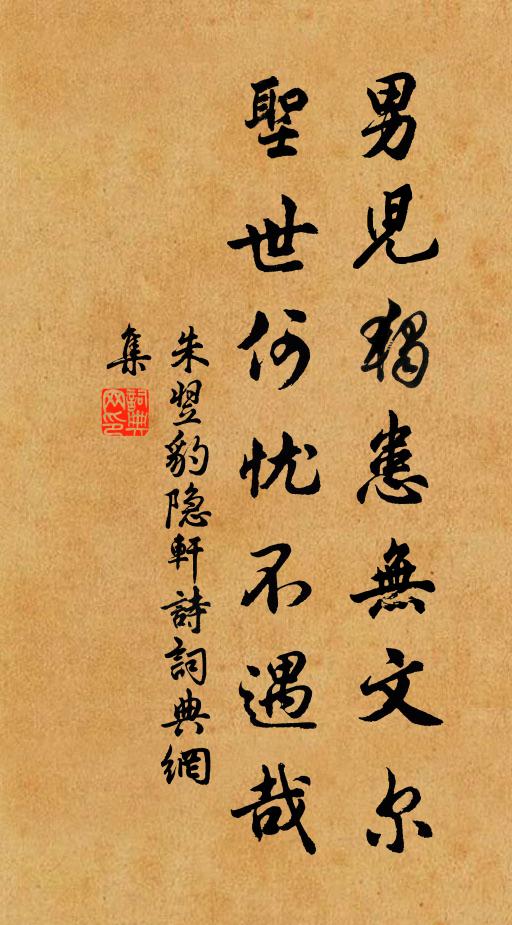 男兒獨患無文尔
聖世何忧不遇哉
朱翌豹隐軒詩詞典網
集
詞典网印